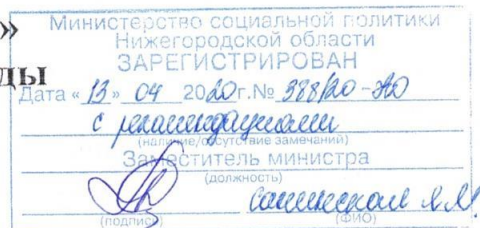 »
ды
Министерство социальной политики
Нижегородской области
ЗАРЕГИСТРИРОВАН
Дата « 13 » 04 2020 г. № 388/20-АО
с рекомендациями
(наличие/отсутствие замечаний)
Заместитель министра
(должность)
(подпись) (ФИО)